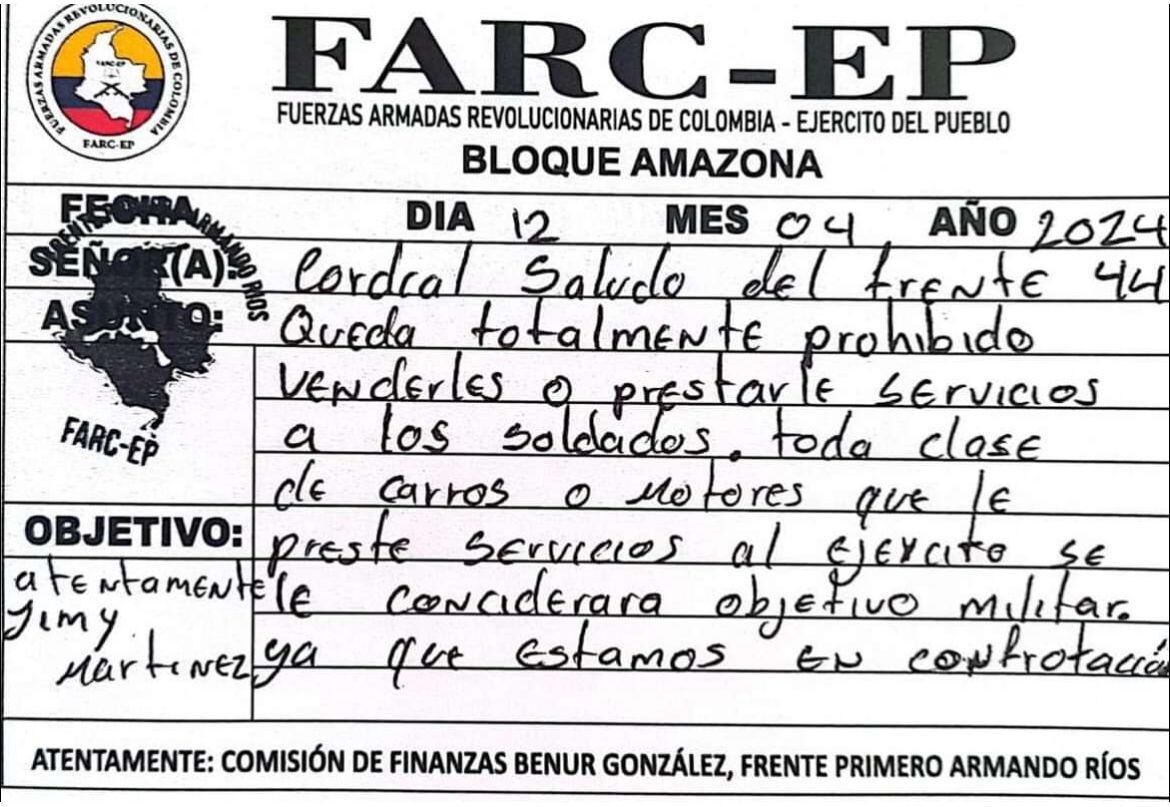 FUERZAS ARMADAS REVOLUCIONARIAS DE COLOMBIA
FARC-EP
FARC-EP
FARC-EP
FUERZAS ARMADAS REVOLUCIONARIAS DE COLOMBIA - EJERCITO DEL PUEBLO
BLOQUE AMAZONA
FECHA DIA 12 MES 04 AÑO 2024
SEÑOR(A): Cordial Saludo del frente 44
ASUNTO: Queda totalmente prohibido
venderles o prestarle servicios
a los soldados. toda clase
de carros o motores que le
OBJETIVO: preste servicios al ejercito se
atentamente le conciderara objetivo militar.
Yimy
Martinez ya que estamos en controtación
ARMANDO RIOS
FARC-EP
ATENTAMENTE: COMISIÓN DE FINANZAS BENUR GONZÁLEZ, FRENTE PRIMERO ARMANDO RÍOS